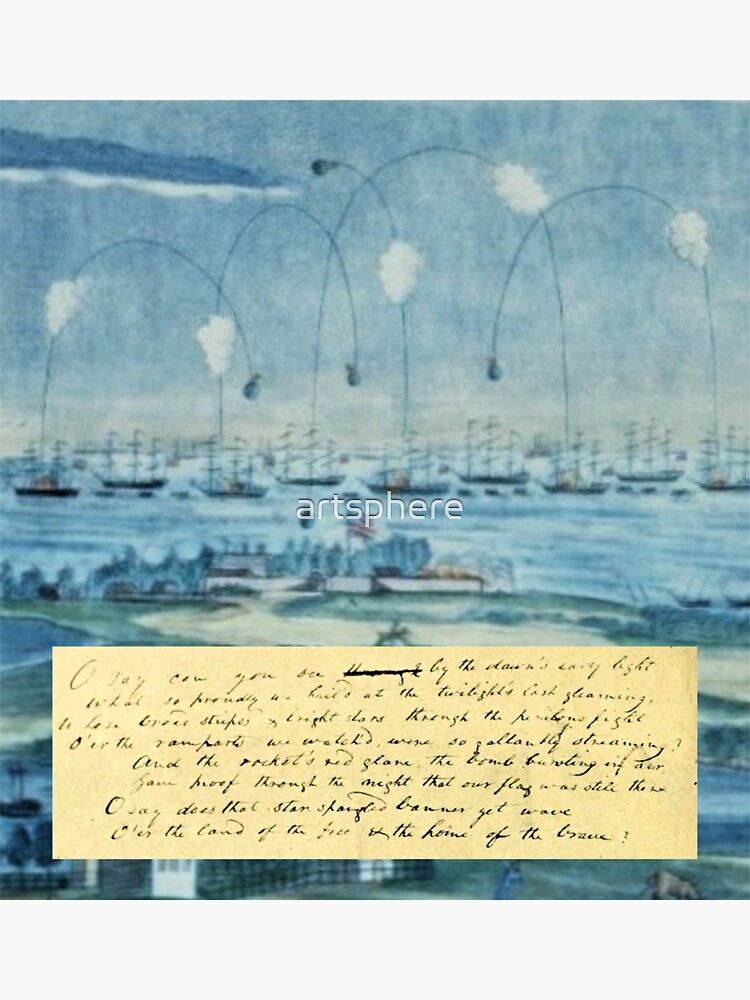 artsphere
O say can you see through by the dawn's early light
What so proudly we hail'd at the twilight's last gleaming,
Whose broad stripes & bright stars through the perilous fight
O'er the ramparts we watch'd, were so gallantly streaming?
And the rocket's red glare, the bomb bursting in air,
Gave proof through the night that our flag was still there
O say does that star spangled banner yet wave
O'er the land of the free & the home of the brave?